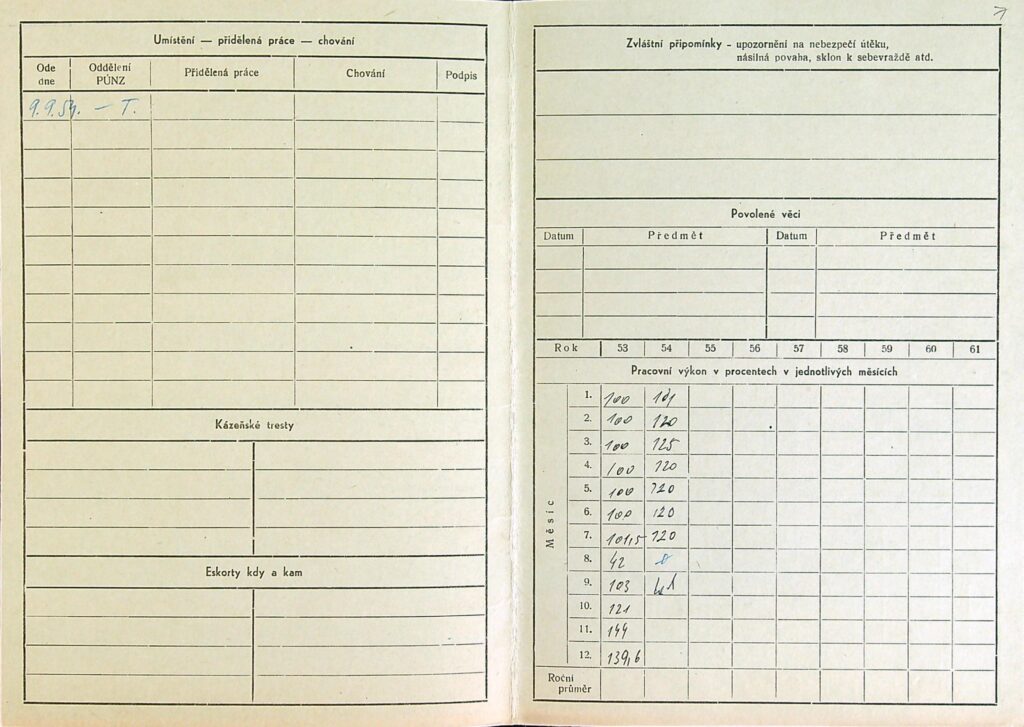 Umístění — přidělená práce — chování
Ode dne
Oddělení PÚNZ
Přidělená práce
Chování
Podpis
9.9.54. — T.
Kázeňské tresty
Eskorty kdy a kam
Zvláštní připomínky - upozornění na nebezpečí útěku,
násilná povaha, sklon k sebevraždě atd.
Povolené věci
Datum Předmět Datum Předmět
Rok 53 54 55 56 57 58 59 60 61
Pracovní výkon v procentech v jednotlivých měsících
Měsíc
1. 100
2. 100 120
3. 100 125
4. 100 120
5. 100 120
6. 100 120
7. 101,5 120
8. 42
9. 103
10. 121
11. 144
12. 139,6
Roční průměr